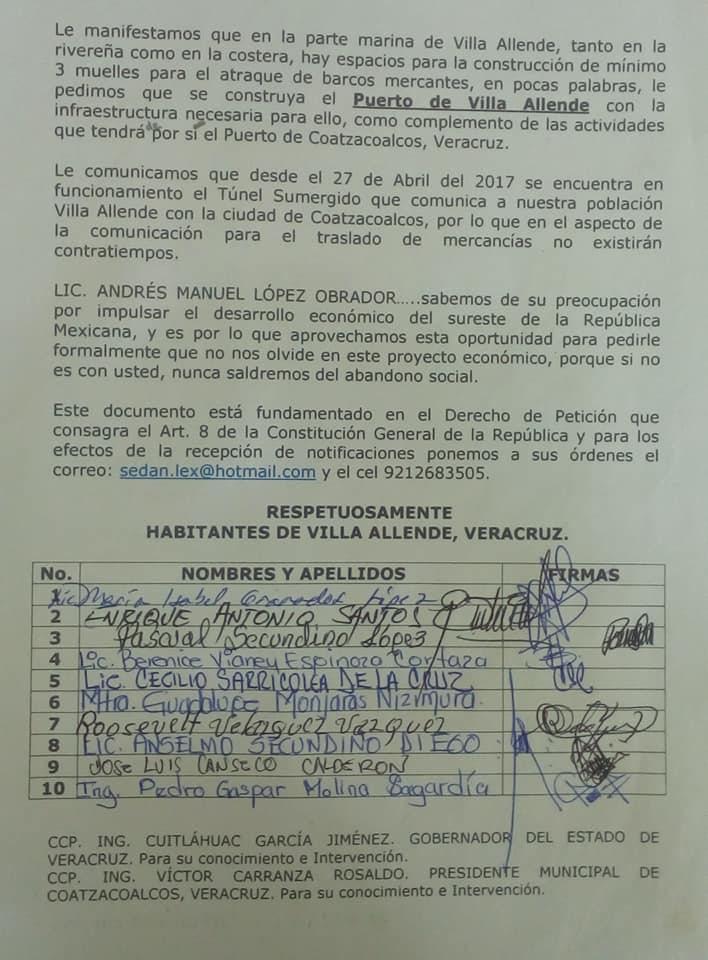 Le manifestamos que en la parte marina de Villa Allende, tanto en la
rivereña como en la costera, hay espacios para la construcción de mínimo
3 muelles para el atraque de barcos mercantes, en pocas palabras, le
pedimos que se construya el Puerto de Villa Allende con la
infraestructura necesaria para ello, como complemento de las actividades
que tendrá por sí el Puerto de Coatzacoalcos, Veracruz.
Le comunicamos que desde el 27 de Abril del 2017 se encuentra en
funcionamiento el Túnel Sumergido que comunica a nuestra población
Villa Allende con la ciudad de Coatzacoalcos, por lo que en el aspecto de
la comunicación para el traslado de mercancías no existirán
contratiempos.
LIC. ANDRÉS MANUEL LÓPEZ OBRADOR…..sabemos de su preocupación
por impulsar el desarrollo económico del sureste de la República
Mexicana, y es por lo que aprovechamos esta oportunidad para pedirle
formalmente que no nos olvide en este proyecto económico, porque si no
es con usted, nunca saldremos del abandono social.
Este documento está fundamentado en el Derecho de Petición que
consagra el Art. 8 de la Constitución General de la República y para los
efectos de la recepción de notificaciones ponemos a sus órdenes el
correo: sedan.lex@hotmail.com y el cel 9212683505.
RESPETUOSAMENTE
HABITANTES DE VILLA ALLENDE, VERACRUZ.
No. NOMBRES Y APELLIDOS FIRMAS
1 Lic. María Isabel Granados López
2 ENRIQUE ANTONIO SANTOS
3 Pascual Secundino López
4 Lic. Berenice Vianey Espinoza Cortaza
5 Lic. CECILIO SARRICOLEA DE LA CRUZ
6 Mtra. Guadalupe Monjaras Nizimura
7 Roosevelt Velazquez Vazquez
8 LIC. ANSELMO SECUNDINO DIEGO
9 JOSE LUIS CANSECO CALDERON
10 Ing. Pedro Gaspar Molina Sagardía
CCP. ING. CUITLÁHUAC GARCÍA JIMÉNEZ. GOBERNADOR DEL ESTADO DE
VERACRUZ. Para su conocimiento e Intervención.
CCP. ING. VÍCTOR CARRANZA ROSALDO. PRESIDENTE MUNICIPAL DE
COATZACOALCOS, VERACRUZ. Para su conocimiento e Intervención.